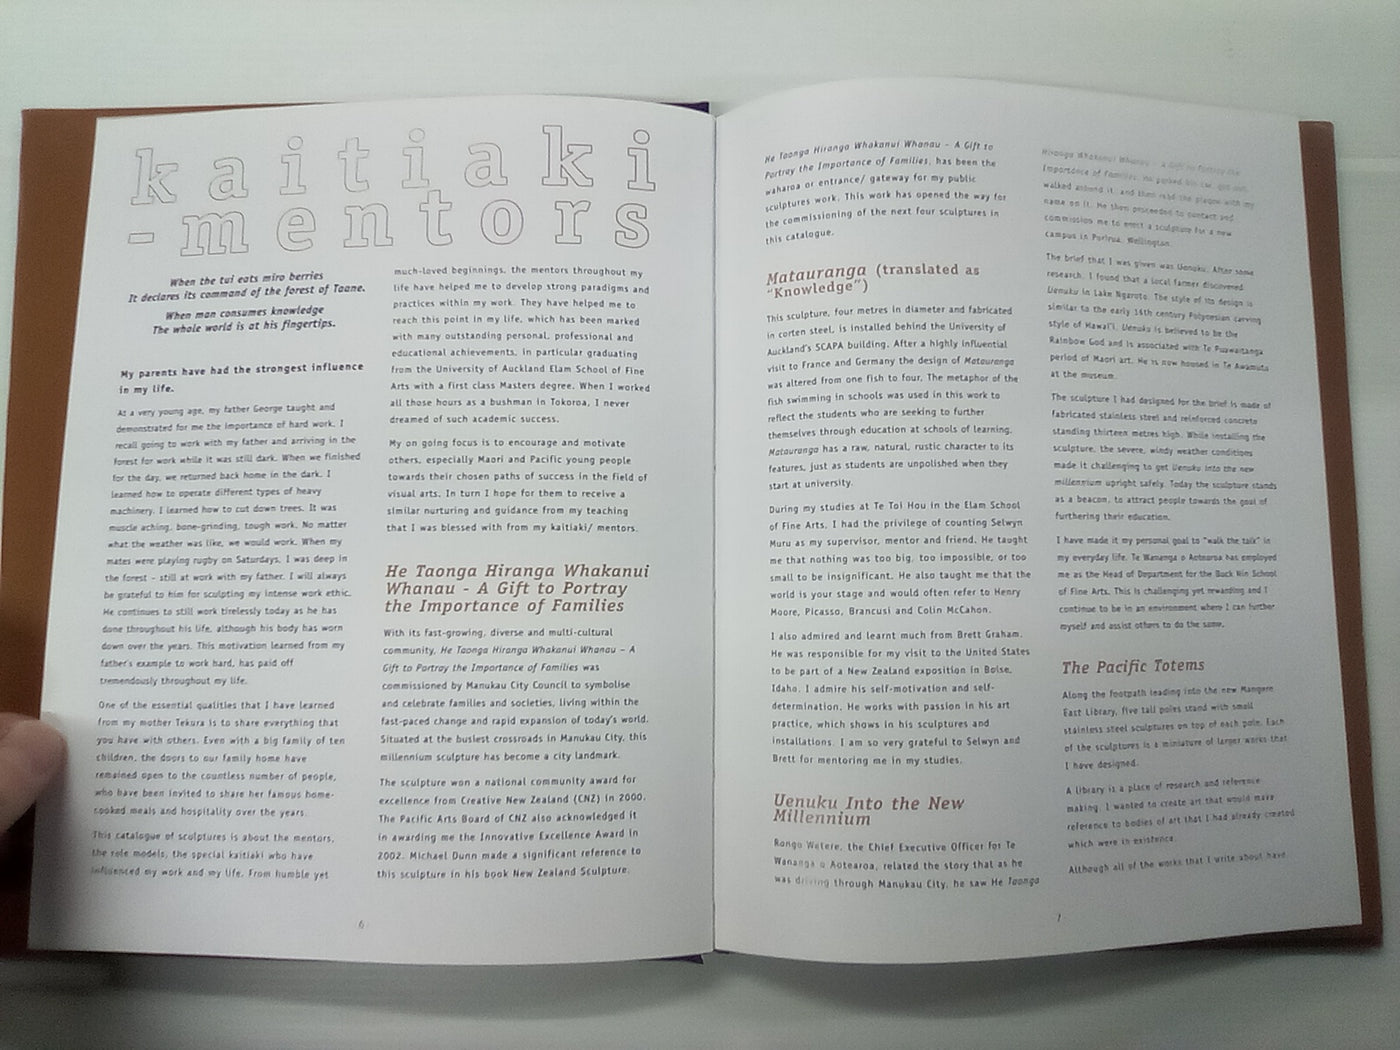 kaitiaki
-mentors
When the tui eats miro berries
It declares its command of the forest of Taane.
When man consumes knowledge
The whole world is at his fingertips.
My parents have had the strongest influence
in my life.
At a very young age, my father George taught and
demonstrated for me the importance of hard work. I
recall going to work with my father and arriving in the
forest for work while it was still dark. When we finished
for the day, we returned back home in the dark. I
learned how to operate different types of heavy
machinery. I learned how to cut down trees. It was
muscle aching, bone-grinding, tough work. No matter
what the weather was like, we would work. When my
mates were playing rugby on Saturdays, I was deep in
the forest - still at work with my father. I will always
be grateful to him for sculpting my intense work ethic.
He continues to still work tirelessly today as he has
done throughout his life, although his body has worn
down over the years. This motivation learned from my
father's example to work hard, has paid off
tremendously throughout my life.
One of the essential qualities that I have learned
from my mother Tekura is to share everything that
you have with others. Even with a big family of ten
children, the doors to our family home have
remained open to the countless number of people,
who have been invited to share her famous home-
cooked meals and hospitality over the years.
This catalogue of sculptures is about the mentors,
the role models, the special kaitiaki who have
influenced my work and my life. From humble yet
much-loved beginnings, the mentors throughout my
life have helped me to develop strong paradigms and
practices within my work. They have helped me to
reach this point in my life, which has been marked
with many outstanding personal, professional and
educational achievements, in particular graduating
from the University of Auckland Elam School of Fine
Arts with a first class Masters degree. When I worked
all those hours as a bushman in Tokoroa, I never
dreamed of such academic success.
My on going focus is to encourage and motivate
others, especially Maori and Pacific young people
towards their chosen paths of success in the field of
visual arts. In turn I hope for them to receive a
similar nurturing and guidance from my teaching
that I was blessed with from my kaitiaki/ mentors.
He Taonga Hiranga Whakanui
Whanau - A Gift to Portray
the Importance of Families
With its fast-growing, diverse and multi-cultural
community, He Taonga Hiranga Whakanui Whanau - A
Gift to Portray the Importance of Families was
commissioned by Manukau City Council to symbolise
and celebrate families and societies, living within the
fast-paced change and rapid expansion of today's world.
Situated at the busiest crossroads in Manukau City, this
millennium sculpture has become a city landmark.
The sculpture won a national community award for
excellence from Creative New Zealand (CNZ) in 2000.
The Pacific Arts Board of CNZ also acknowledged it
in awarding me the Innovative Excellence Award in
2002. Michael Dunn made a significant reference to
this sculpture in his book New Zealand Sculpture.
6
He Taonga Hiranga Whakanui Whanau - A Gift to
Portray the Importance of Families, has been the
waharoa or entrance/ gateway for my public
sculptures work. This work has opened the way for
the commissioning of the next four sculptures in
this catalogue.
Matauranga (translated as
"Knowledge")
This sculpture, four metres in diameter and fabricated
in corten steel, is installed behind the University of
Auckland's SCAPA building. After a highly influential
visit to France and Germany the design of Matauranga
was altered from one fish to four. The metaphor of the
fish swimming in schools was used in this work to
reflect the students who are seeking to further
themselves through education at schools of learning.
Matauranga has a raw, natural, rustic character to its
features, just as students are unpolished when they
start at university.
During my studies at Te Toi Hou in the Elam School
of Fine Arts, I had the privilege of counting Selwyn
Muru as my supervisor, mentor and friend. He taught
me that nothing was too big, too impossible, or too
small to be insignificant. He also taught me that the
world is your stage and would often refer to Henry
Moore, Picasso, Brancusi and Colin McCahon.
I also admired and learnt much from Brett Graham.
He was responsible for my visit to the United States
to be part of a New Zealand exposition in Boise,
Idaho. I admire his self-motivation and self-
determination. He works with passion in his art
practice, which shows in his sculptures and
installations. I am so very grateful to Selwyn and
Brett for mentoring me in my studies.
Uenuku Into the New
Millennium
Rongo Wetere, the Chief Executive Officer for Te
Wananga o Aotearoa, related the story that as he
was driving through Manukau City, he saw He Taonga
Hiranga Whakanui Whanau - a Gift to Portray the
Importance of Families. He parked his car, got out,
walked around it, and then read the plaque with my
name on it. He then proceeded to contact and
commission me to erect a sculpture for a new
campus in Porirua, Wellington.
The brief that I was given was Uenuku. After some
research, I found that a local farmer discovered
Uenuku in Lake Ngaroto. The style of its design is
similar to the early 14th century Polynesian carving
style of Hawai'i. Uenuku is believed to be the
Rainbow God and is associated with Te Puawaitanga
period of Maori art. He is now housed in Te Awamutu
at the museum.
The sculpture I had designed for the brief is made of
fabricated stainless steel and reinforced concrete
standing thirteen metres high. While installing the
sculpture, the severe, windy weather conditions
made it challenging to get Uenuku into the new
millennium upright safely. Today the sculpture stands
as a beacon, to attract people towards the goal of
furthering their education.
I have made it my personal goal to "walk the talk" in
my everyday life. Te Wananga o Aotearoa has employed
me as the Head of Department for the Buck Nin School
of Fine Arts. This is challenging yet rewarding and I
continue to be in an environment where I can further
myself and assist others to do the same.
The Pacific Totems
Along the footpath leading into the new Mangere
East Library, five tall poles stand with small
stainless steel sculptures on top of each pole. Each
of the sculptures is a miniature of larger works that
I have designed.
A library is a place of research and reference
making. I wanted to create art that would make
reference to bodies of art that I had already created
which were in existence.
Although all of the works that I write about have
7